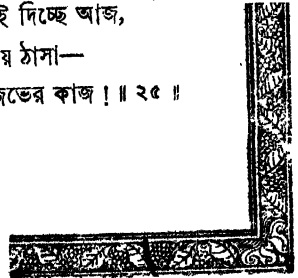 ই দিচ্ছে আজ,
য় ঠাসা—
জভের কাজ ! ॥ ২৫ ॥